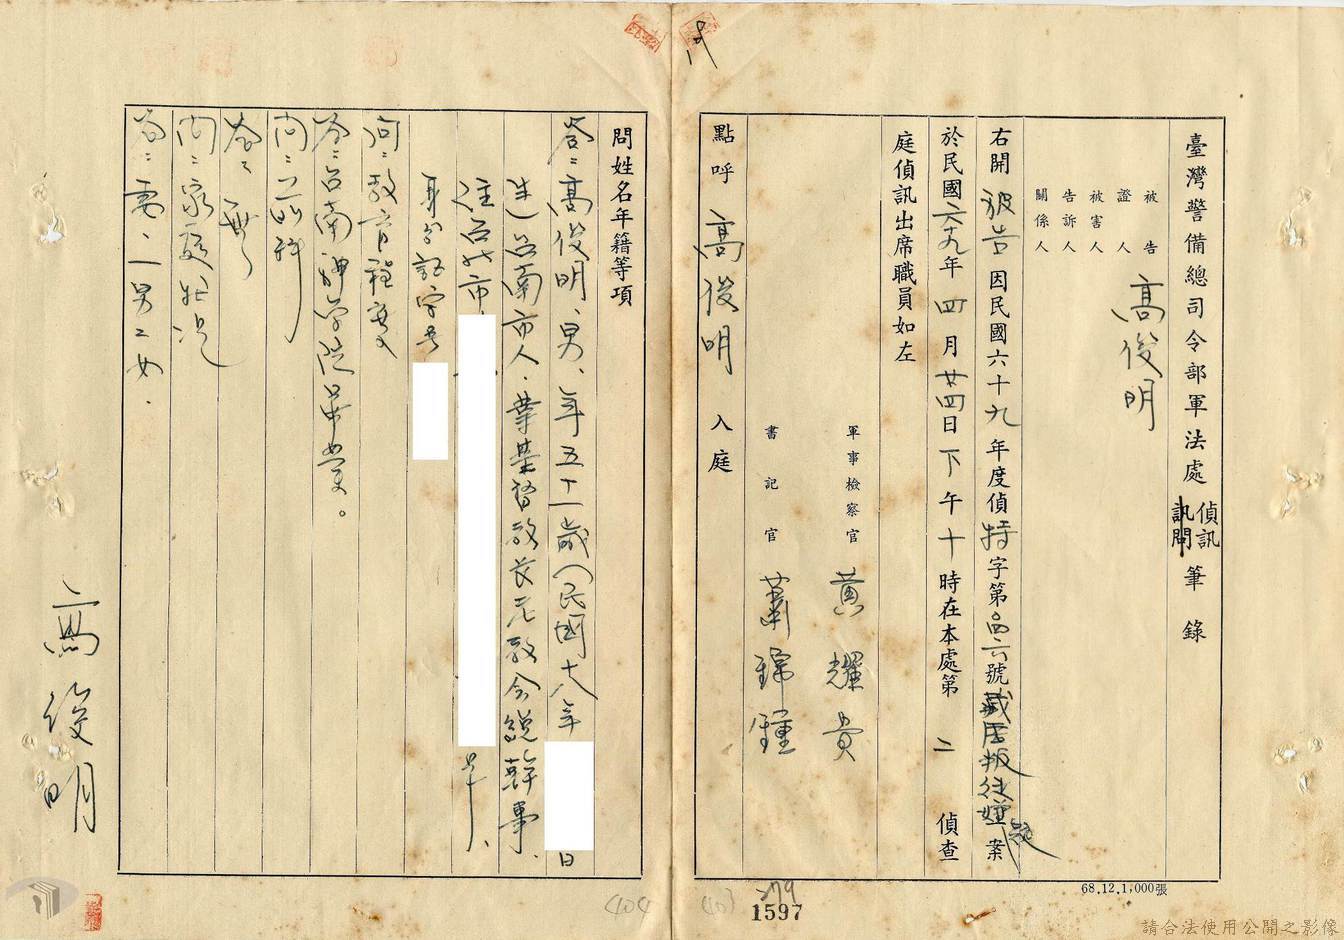 臺灣警備總司令部軍法處偵訊訊問筆錄
被告
證人
被害人
告訴人
關係人
高俊明
右開被告因民國六十九年度偵特字第 號藏匿叛徒嫌疑案
於民國六十九年四月廿四日下午十時在本處第二偵查
庭偵訊出席職員如左
軍事檢察官 黃耀貴
書記官 蕭錦鍾
點呼 高俊明 入庭
問姓名年籍等項
答:高俊明、男、年五十一歲(民國十八年 日
生)台南市人、業基督教長老教會總幹事、
住台北市
身分證字號
問:教育程度
答:台南神學院畢業。
問:前科
答:無
問:家庭狀況
答:妻、一男二女.
高俊明
68.12.1,000張
279
1597
請合法使用公開之影像